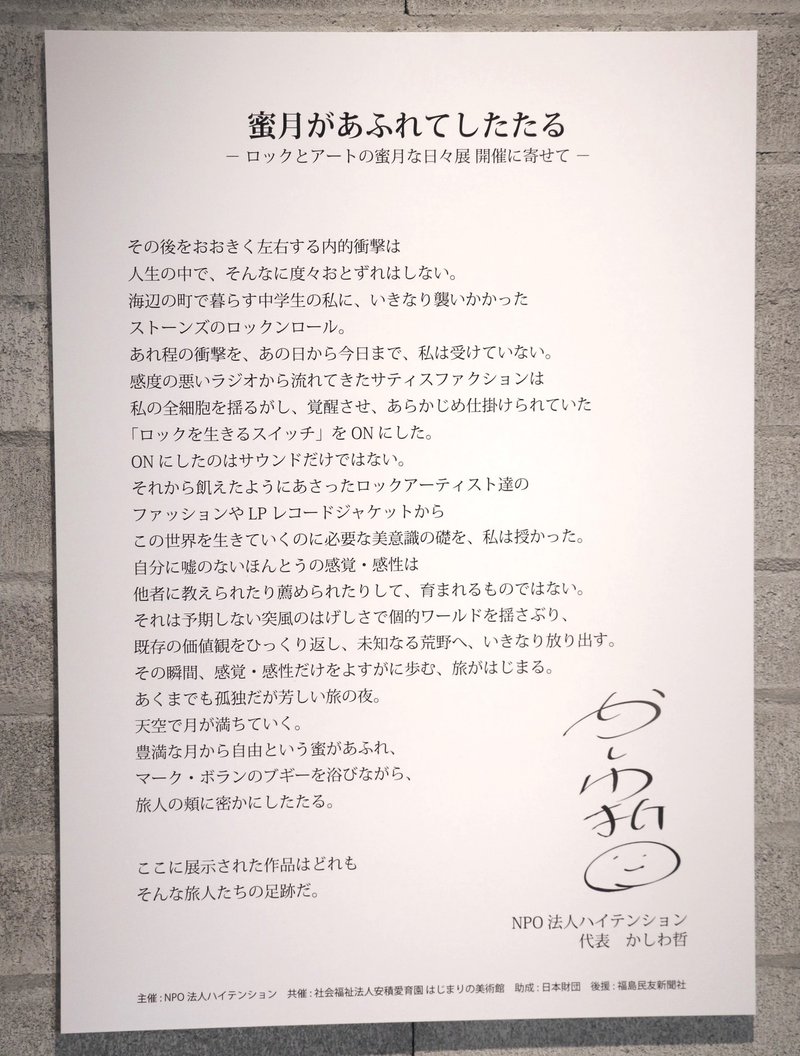 蜜月があふれてしたたる
― ロックとアートの蜜月な日々展 開催に寄せて ―
その後をおおきく左右する内的衝撃は
人生の中で、そんなに度々おとずれはしない。
海辺の町で暮らす中学生の私に、いきなり襲いかかった
ストーンズのロックンロール。
あれ程の衝撃を、あの日から今日まで、私は受けていない。
感度の悪いラジオから流れてきたサティスファクションは
私の全細胞を揺るがし、覚醒させ、あらかじめ仕掛けられていた
「ロックを生きるスイッチ」を ON にした。
ON にしたのはサウンドだけではない。
それから飢えたようにあさったロックアーティスト達の
ファッションや LP レコードジャケットから
この世界を生きていくのに必要な美意識の礎を、私は授かった。
自分に嘘のないほんとうの感覚・感性は
他者に教えられたり薦められたりして、育まれるものではない。
それは予期しない突風のはげしさで個的ワールドを揺さぶり、
既存の価値観をひっくり返し、未知なる荒野へ、いきなり放り出す。
その瞬間、感覚・感性だけをよすがに歩む、旅がはじまる。
あくまでも孤独だが芳しい旅の夜。
天空で月が満ちていく。
豊満な月から自由という蜜があふれ、
マーク・ボランのブギーを浴びながら、
旅人の頬に密かにしたたる。
ここに展示された作品はどれも
そんな旅人たちの足跡だ。
かしわ哲
NPO 法人ハイテンション
代表 かしわ哲
主催 : NPO 法人ハイテンション 共催 : 社会福祉法人安積愛育園 はじまりの美術館 助成 : 日本財団 後援 : 福島民友新聞社